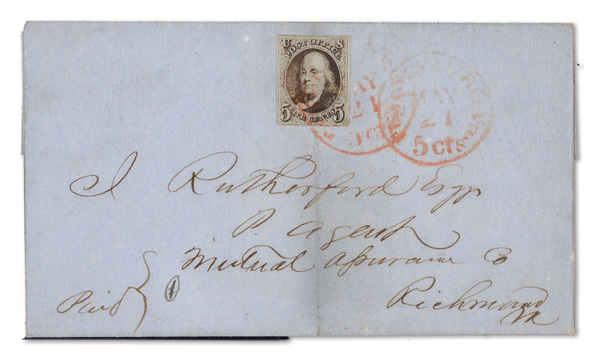 POST OFFICE
5 FIVE CENTS 5
MAY
21
5 cts
MAY
21
5 cts
J Rutherford Esqr
P. Agent
Mutual Assurance Co
Richmond
Va
Paid